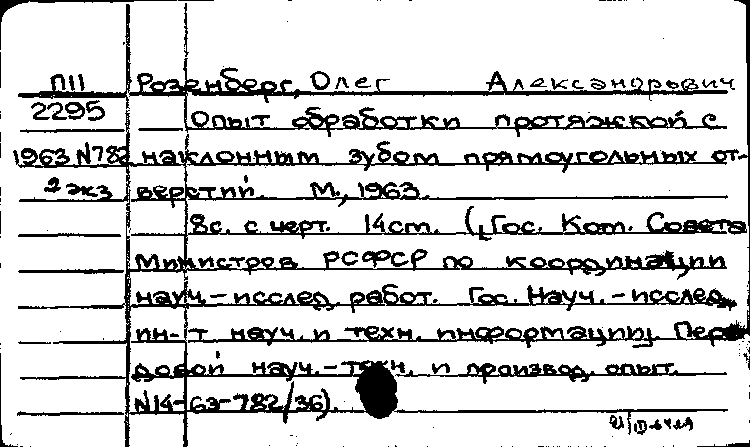 П11 Розенберг, Олег Александрович
2295 Опыт обработки протяжкой с
1963 N782 наклонным зубом прямоугольных от-
2 экз верстий. М., 1963.
8с. с черт. 14cm. (Гос. Ком. Совета
Министров РСФСР по координации
науч.-исслед. работ. Гос. Науч.-исслед.
ин-т науч. и техн. информации. Пере
довой науч.-техн. и производ. опыт.
N14-63-782/36).